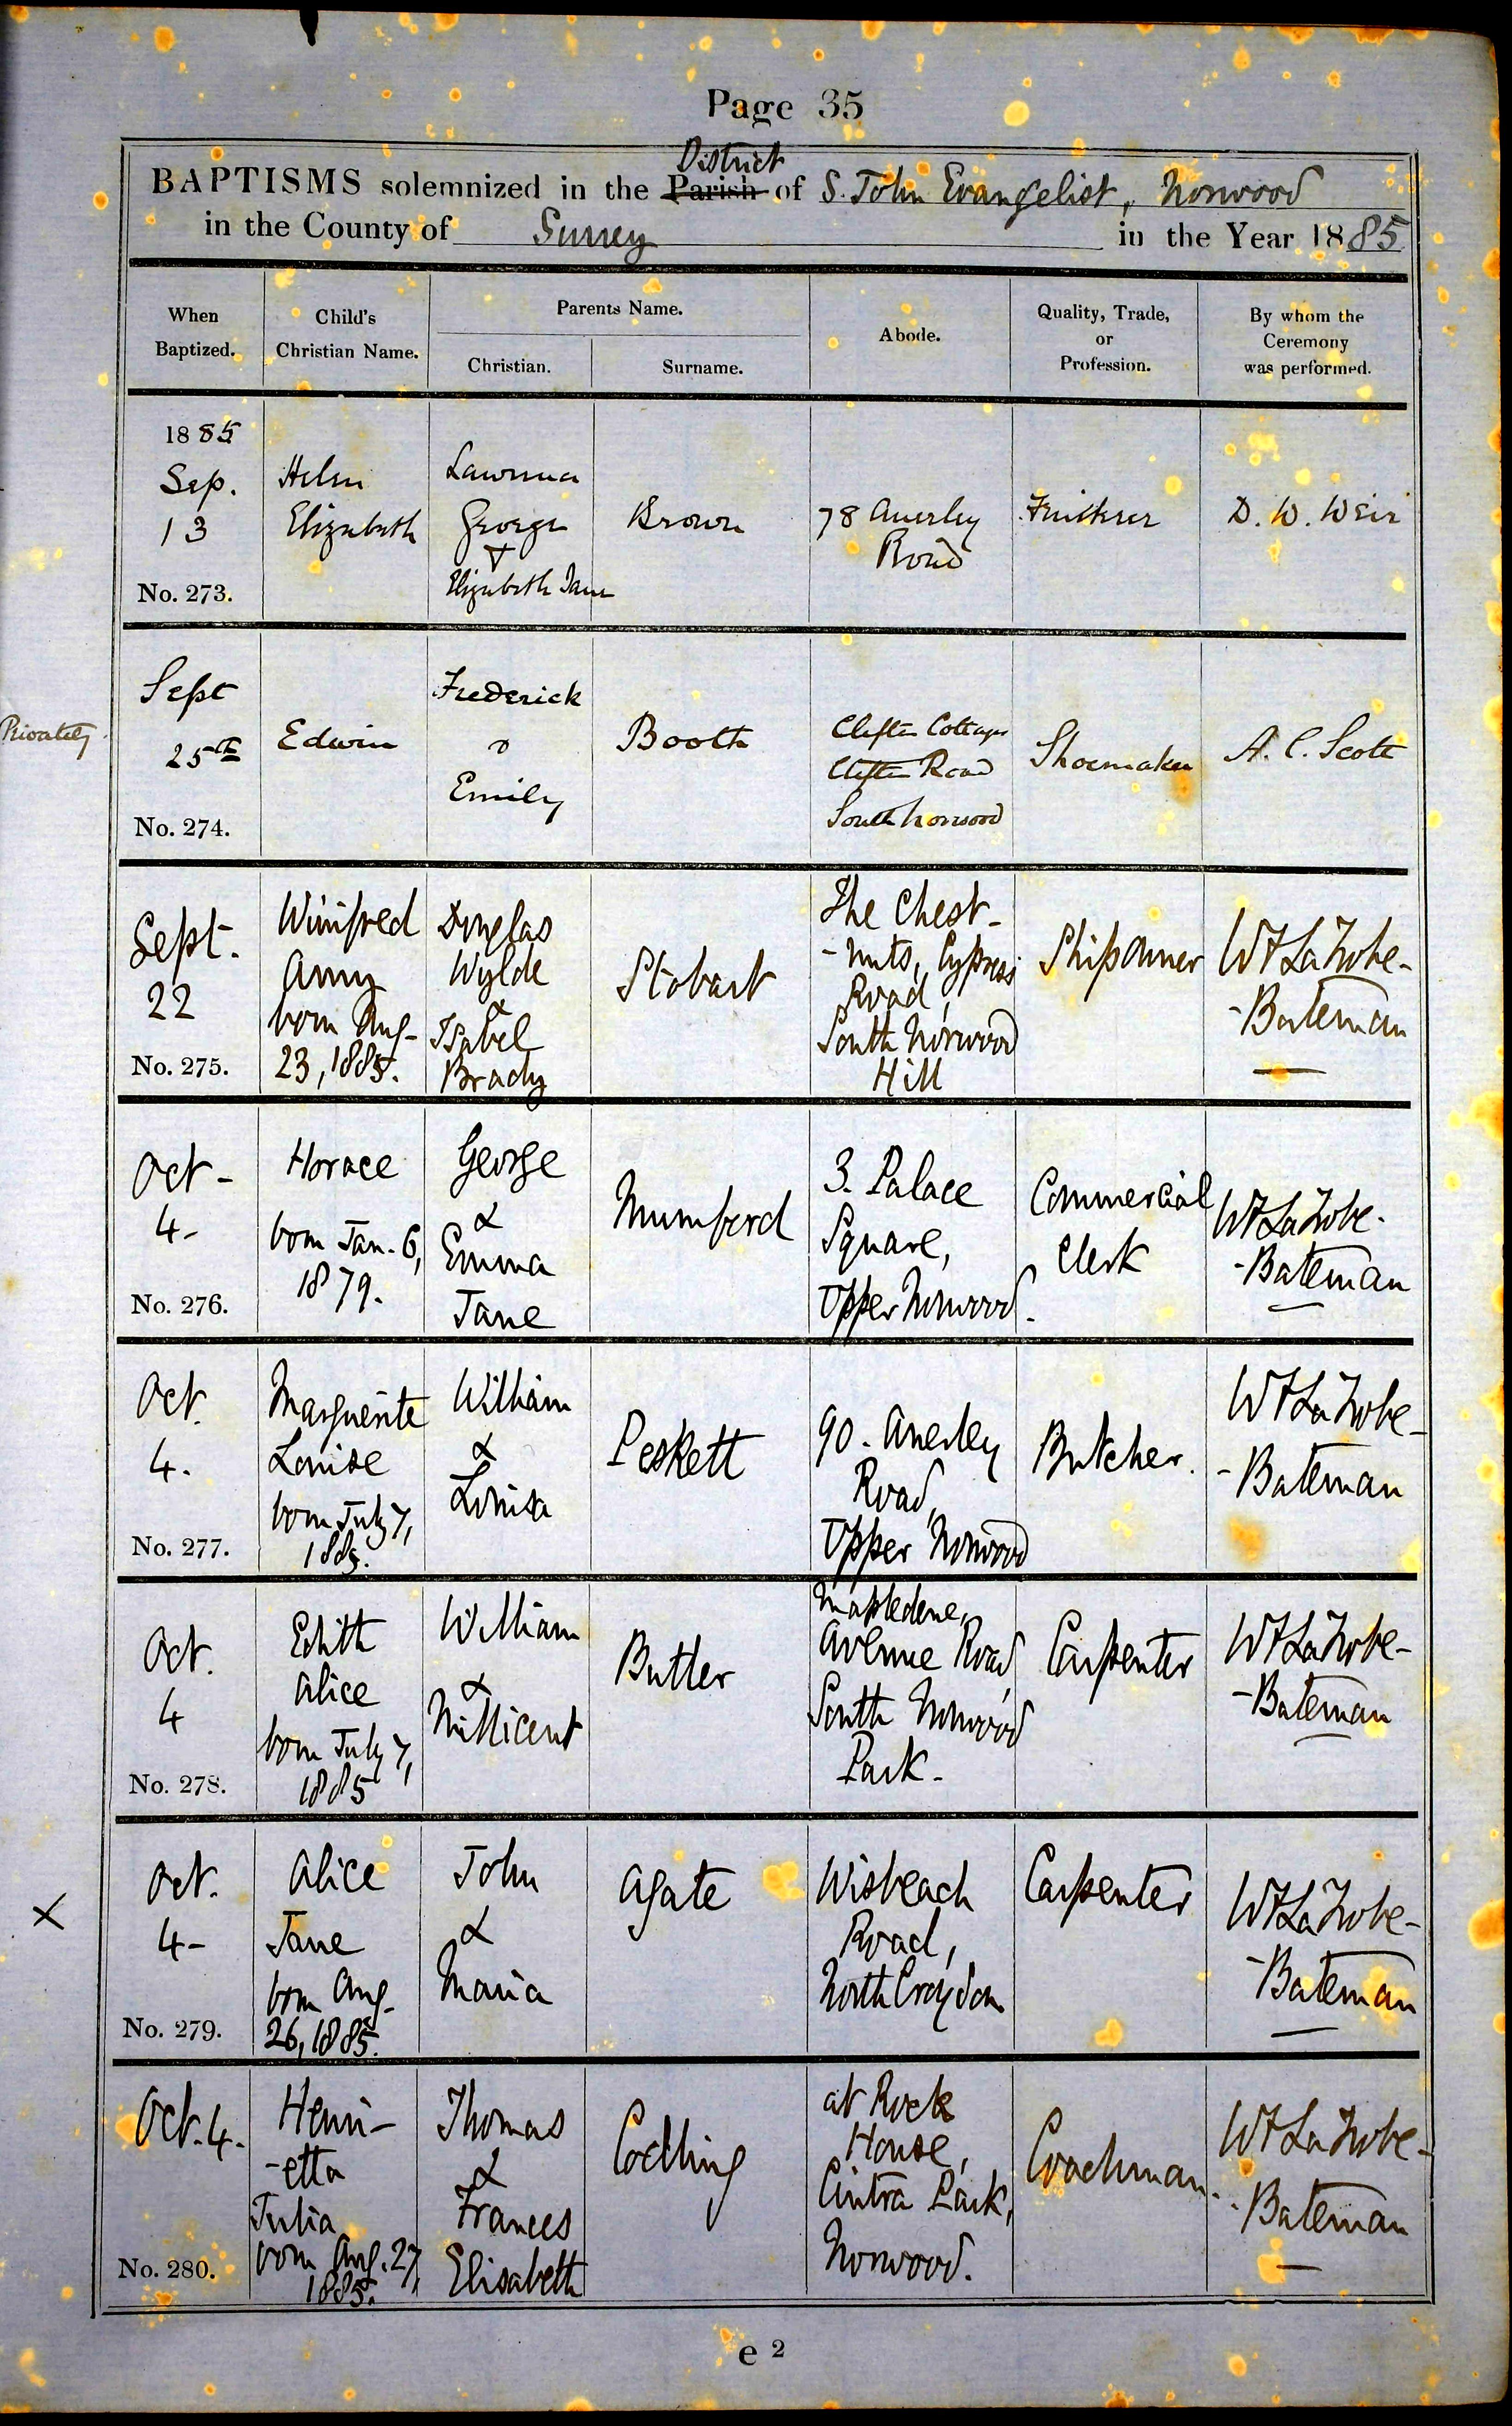 Page 35
District
BAPTISMS solemnized in the Parish of S. John Evangelist, Norwood
in the County of Surrey in the Year 1885
When Baptized.
Child's Christian Name.
Parents Name.
Christian.
Surname.
Abode.
Quality, Trade, or Profession.
By whom the Ceremony was performed.
1885
Sep.
13
No. 273.
Helen
Elizabeth
George
&
Elizabeth Jane
Brown
78 Anerley
Road
D. W. Weir
Privately
Sept
25th
No. 274.
Edwin
Frederick
&
Emily
Booth
Clifton Cottages
Clifton Road
South Norwood
Shoemaker
A. C. Scott
Sept.
22
No. 275.
Winifred
Amy
born Aug-
23, 1885.
Douglas
Wylde
&
Isabel
Brady
Stobart
The Chest-
-nuts, Cypress
Road,
South Norwood
Hill
Shipowner
W F LaTrobe-
-Bateman
Oct-
4-
No. 276.
Horace
born Jan. 6,
1879.
George
&
Emma
Jane
Mumford
3. Palace
Square,
Upper Norwood.
Commercial
Clerk
W F LaTrobe-
-Bateman
Oct.
4.
No. 277.
Marguerite
Louise
born July 7,
1885.
William
&
Louisa
Peskett
90. Anerley
Road,
Upper Norwood
Butcher.
W F LaTrobe-
-Bateman
Oct.
4
No. 278.
Edith
Alice
born July 7,
1885
William
&
Millicent
Butler
Mapledene,
Avenue Road,
South Norwood
Park-
Carpenter
W F LaTrobe-
-Bateman
X
Oct.
4-
No. 279.
Alice
Jane
born Aug-
26, 1885.
John
&
Maria
Agate
Wisbeach
Road,
North Croydon
Carpenter
W F LaTrobe-
-Bateman
Oct. 4.
No. 280.
Henri-
-etta
Julia
born Aug. 27,
1885.
Thomas
&
Frances
Elisabeth
Codling
at Rock
House,
Cintra Park,
Norwood.
Coachman.
W F LaTrobe-
-Bateman
e 2